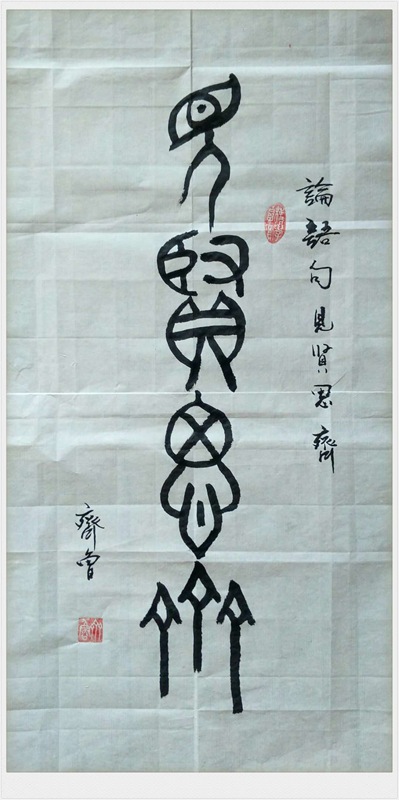 論語句見賢思齊
見賢思齊
齊魯